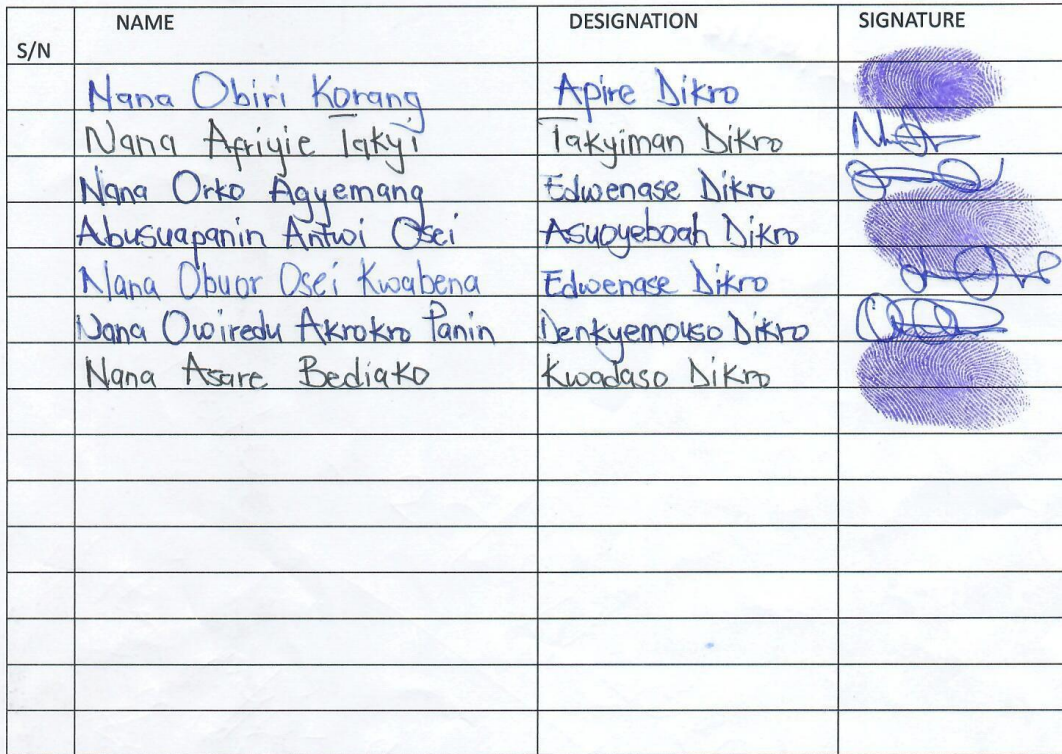 S/N NAME DESIGNATION SIGNATURE
Nana Obiri Korang Apire Dikro
Nana Afriyie Takyi Takyiman Dikro
Nana Orko Agyemang Edwenase Dikro
Abusuapanin Antwi Osei Asuoyeboah Dikro
Nana Obuor Osei Kwabena Edwenase Dikro
Nana Owiredu Akrokro Panin Denkyemouso Dikro
Nana Asare Bediako Kwadaso Dikro